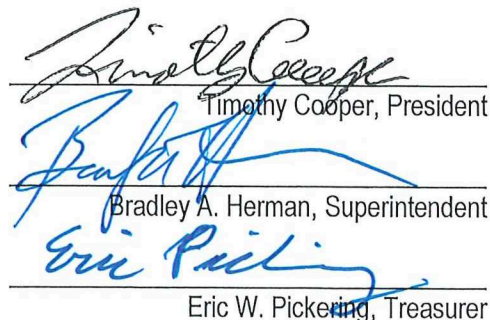 Timothy Cooper
Timothy Cooper, President
Bradley A. Herman, Superintendent
Eric Pickering
Eric W. Pickering, Treasurer